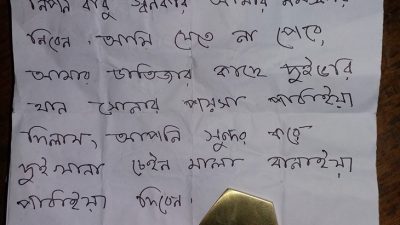 নিপন বাবু স্বর্নকার আমার নমস্কার
নিবেন, আমি যেতে না পেরে,
আমার ভাতিজার কাছে দুইভরি
খান সোনার পায়সা পাঠাইয়া
দিলাম, আপনি সুন্দর করে
দুইখানা চেইন মালা বানাইয়া
পাঠাইয়া দিবেন।